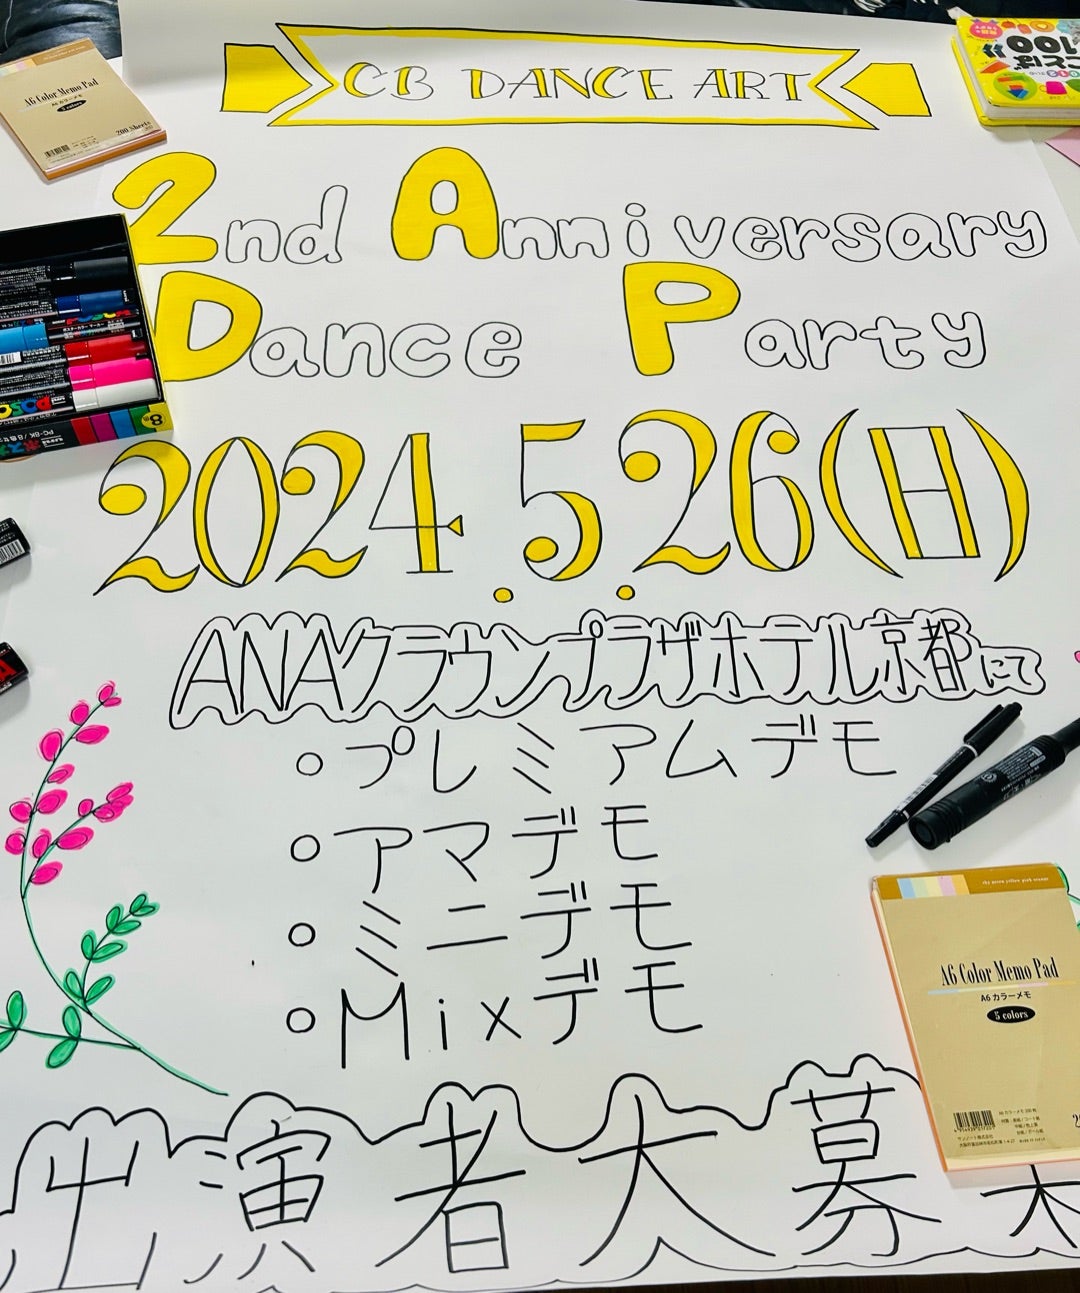 CB DANCE ART
2nd Anniversary
Dance Party
2024.5.26(日)
ANAクラウンプラザホテル京都にて
○プレミアムデモ
○アマデモ
○ミニデモ
○Mixデモ
出演者大募
A6 Color Memo Pad
A6カラーメモ
5 colors
200 Sheets
PC-8K/8色セット
A6 Color Memo Pad
A6カラーメモ
5 colors
100